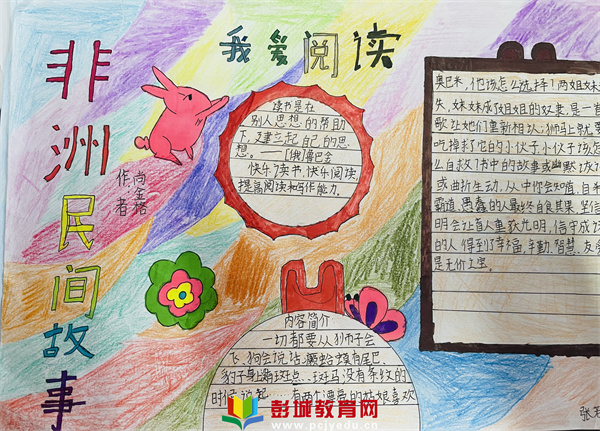 非洲民间故事
作者
我爱阅读
读书是在
别人思想的帮助
下,建立起自己的思
想。——[俄]鲁巴金
快乐读书,快乐阅读,
提高阅读和写作能力。
内容简介
一切都要从狮子会
飞、狗会说话、癞蛤蟆有尾巴、
豹子身上满斑点、斑马没有条纹的
时候说起……有两个漂亮的姑娘喜欢
奥巴米,他该怎么选择!两姐妹
失,妹妹成姐姐的奴隶,是一首
歌让她们重新相认;狮马上就要
吃掉救了它的小伙子,小伙子该怎
么自救?书中的故事或幽默诙
或曲折生动,从中你会知道,自私
霸道、愚蠢的人最终自食其果,坚信
明会让盲人重获光明,信守成
的人得到了幸福,辛勤、智慧、友
是无价之宝。
张
彭城教育网
www.pcjyedu.cn